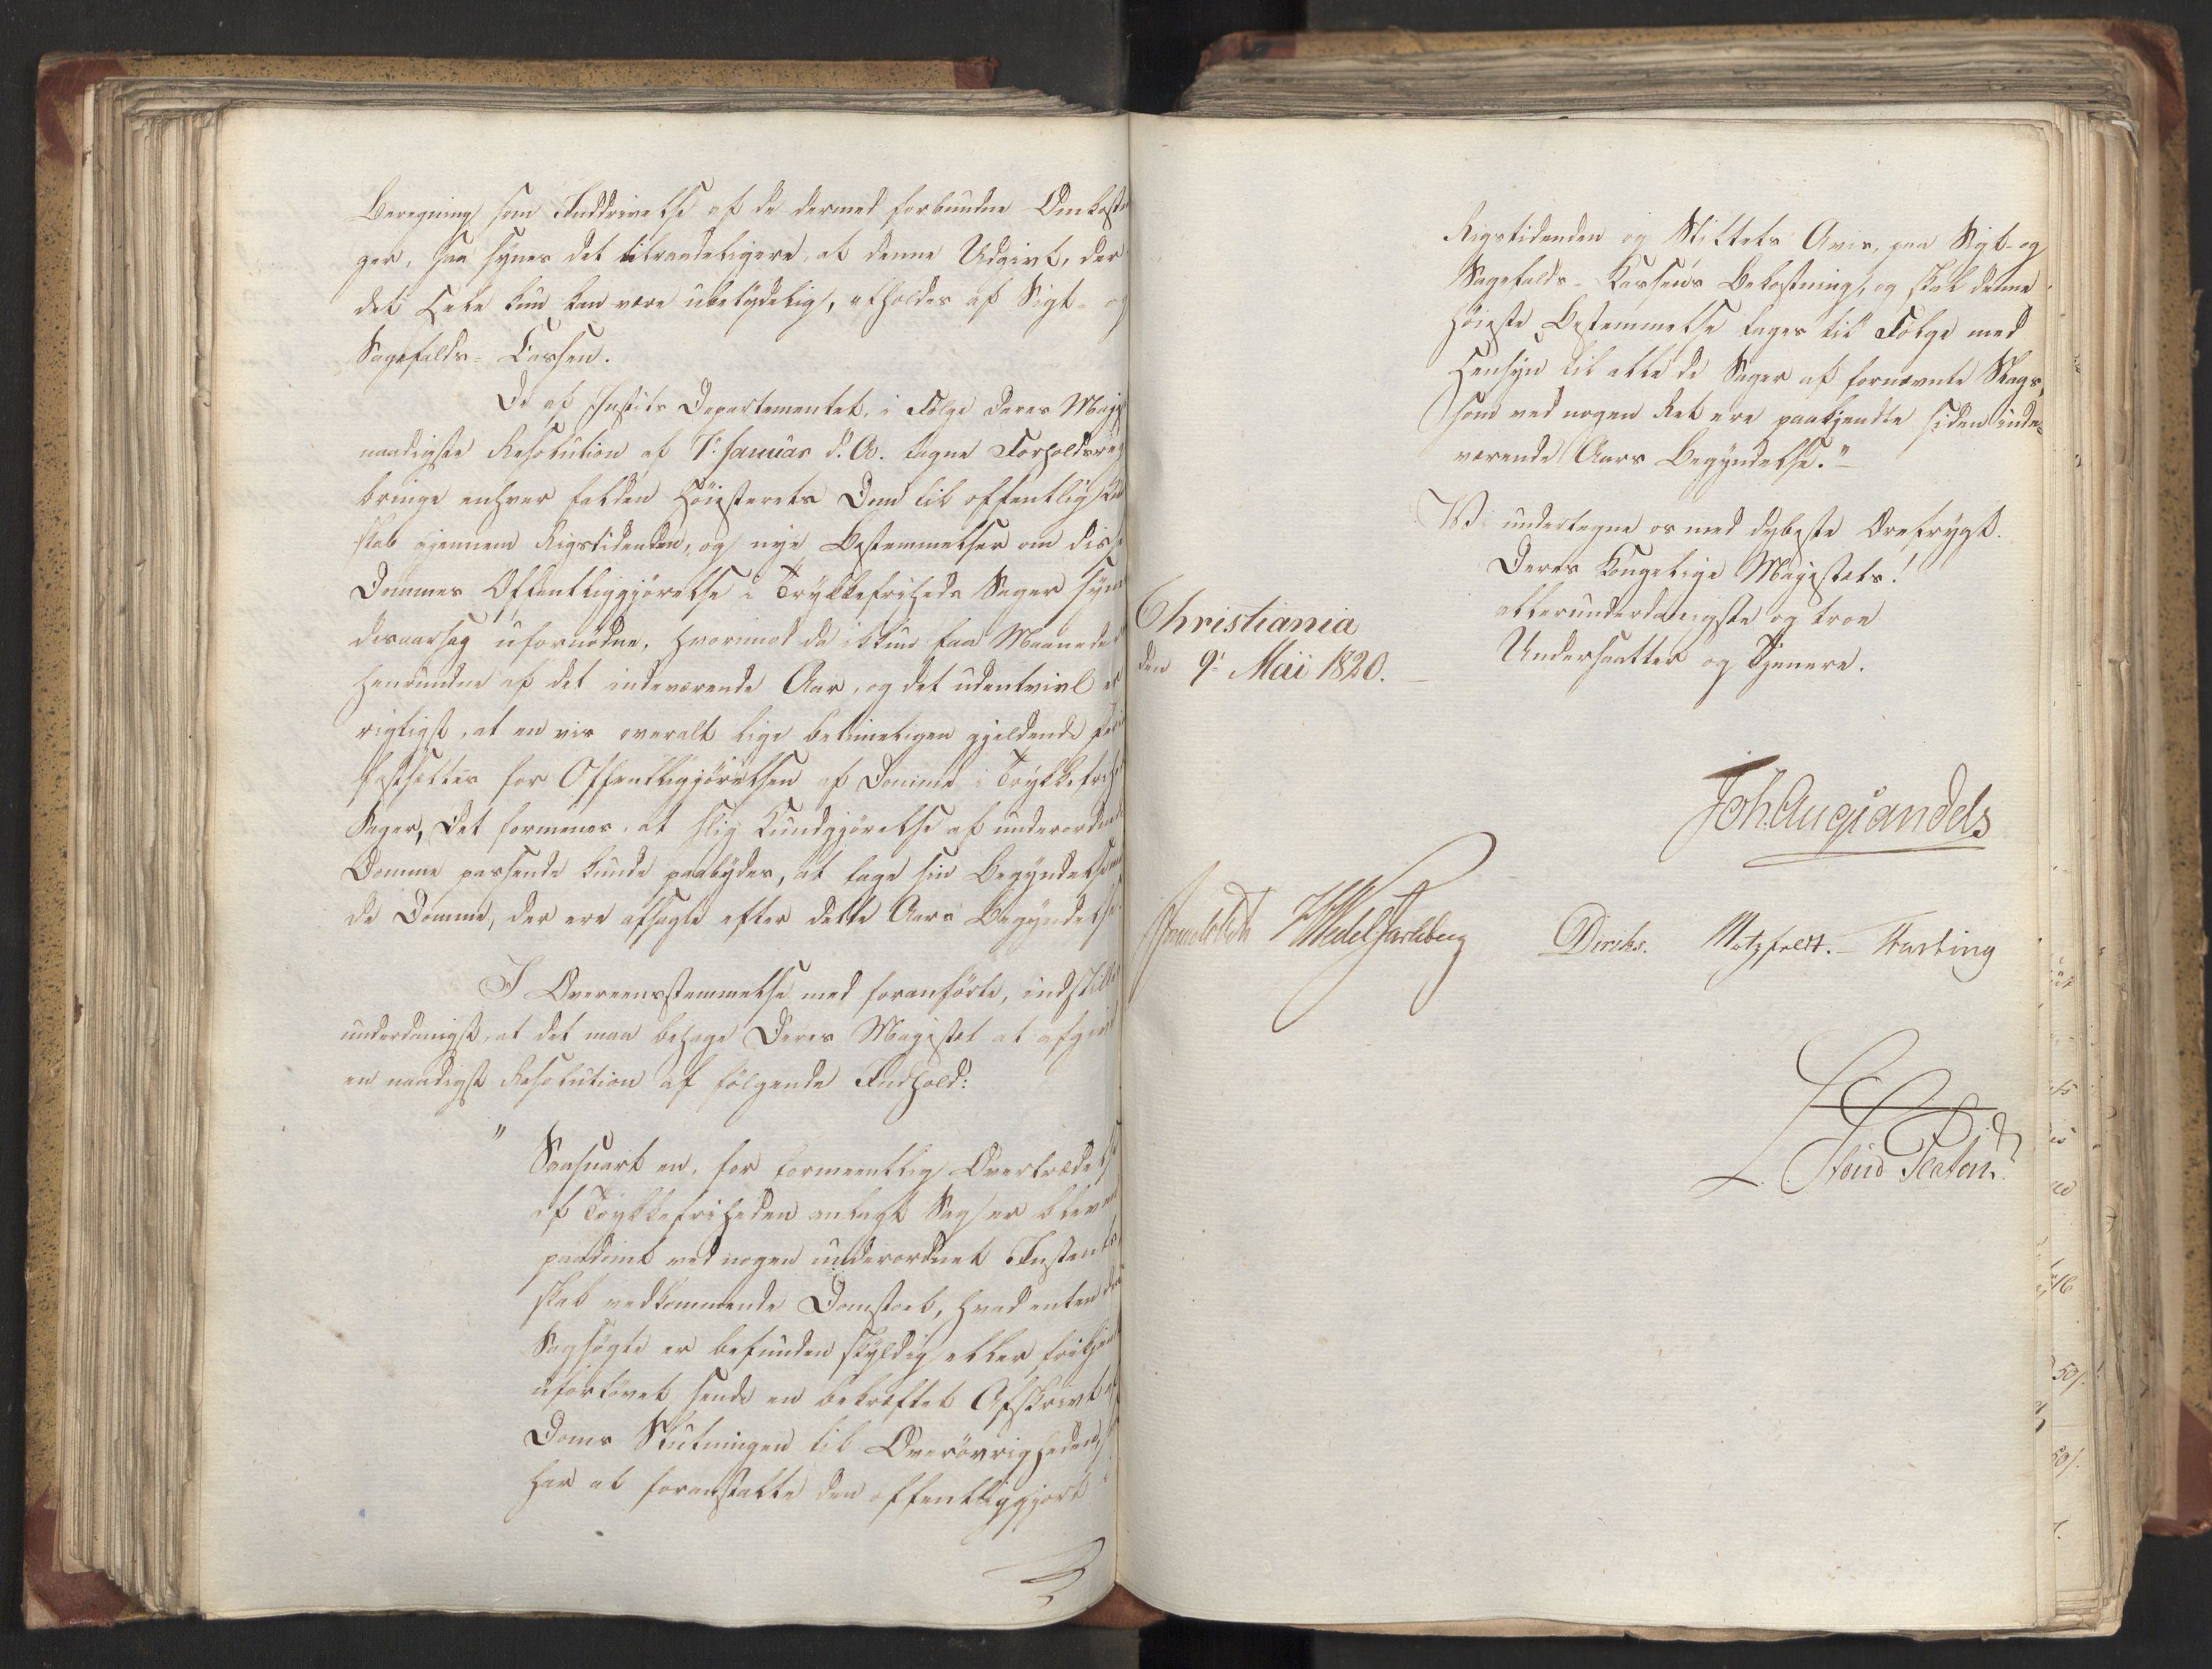 Beregning som Inddrivelse af de dermed forbundne Omkostn
ger, saa synes det tilraadeligere, at denne Udgivt, der
det Hele kun kan være ubetydelig, afholdes af Sigt- og
Sagefalds- Cassen.
De af Justits Departementet, i Følge Deres Majst
naadigste Resolution af 7de Januar d. A. tagne Forholdsreg
bringe enhver falden Høiesterets Dom til offentlig Kund
skab gjennem Rigstidenden, og nye Bestemmelser om disse
Dommes Offentliggjørelse i Trykkefriheds Sager synes
desaarsag ufornødne, hvorimod da ikkun faa Maaneder
henrundne af det indeværende Aar, og det udentvivl er
rigtigst, at en vis overalt lige betimeligen gjeldende
fastsættes for Offentliggjørelsen af Domme i Trykkefrih
Sager, Det formenes, at slig Kundgjørelse af underordnede
Domme passende kunde paabydes, at tage sin Begyndelse med
de Domme, der ere afsagte efter dette Aars Begyndelse.
I Overeensstemmelse med foranførte, indstilles
underdanigst, at det maa behage Deres Majestæt at afgive
en naadigst Resolution af følgende Indhold:
" Saasnart en, for formeentlig Overtrædelse
af Trykkefriheden anlagt Sag er bleven
paadømt ved nogen underordnet Instants,
skal vedkommende Domstoel, hvad enten den
Sagsøgte er befunden skyldig eller frikjendt
ufortøvet sende en bekræftet Afskrivt af
Doms Slutningen til Overøvrigheden,
har at foranstalte den offentliggjort i
Rigstidenden og Stiftets Avis, paa Sigt- og
Sagefalds- Kassens Bekostning, og skal denne
høieste Bestemmelse tages til Følge med
Hensyn til alle de Sager af fornævnte Slags,
som ved nogen Ret ere paakjendte siden inde=
værende Aars Begyndelse."
Vi undertegne os med dybeste Ærefrygt.
Deres Kongelige Majestæts!
allerunderdanigste og troe
Undersaatter og Tjenere.
Christiania
den 9de Maii 1820.
Joh. Aug. Sandels
Sommerhielm HWedel Jarlsberg Diriks. Motzfeldt. - Fasting
Stoud Platou.